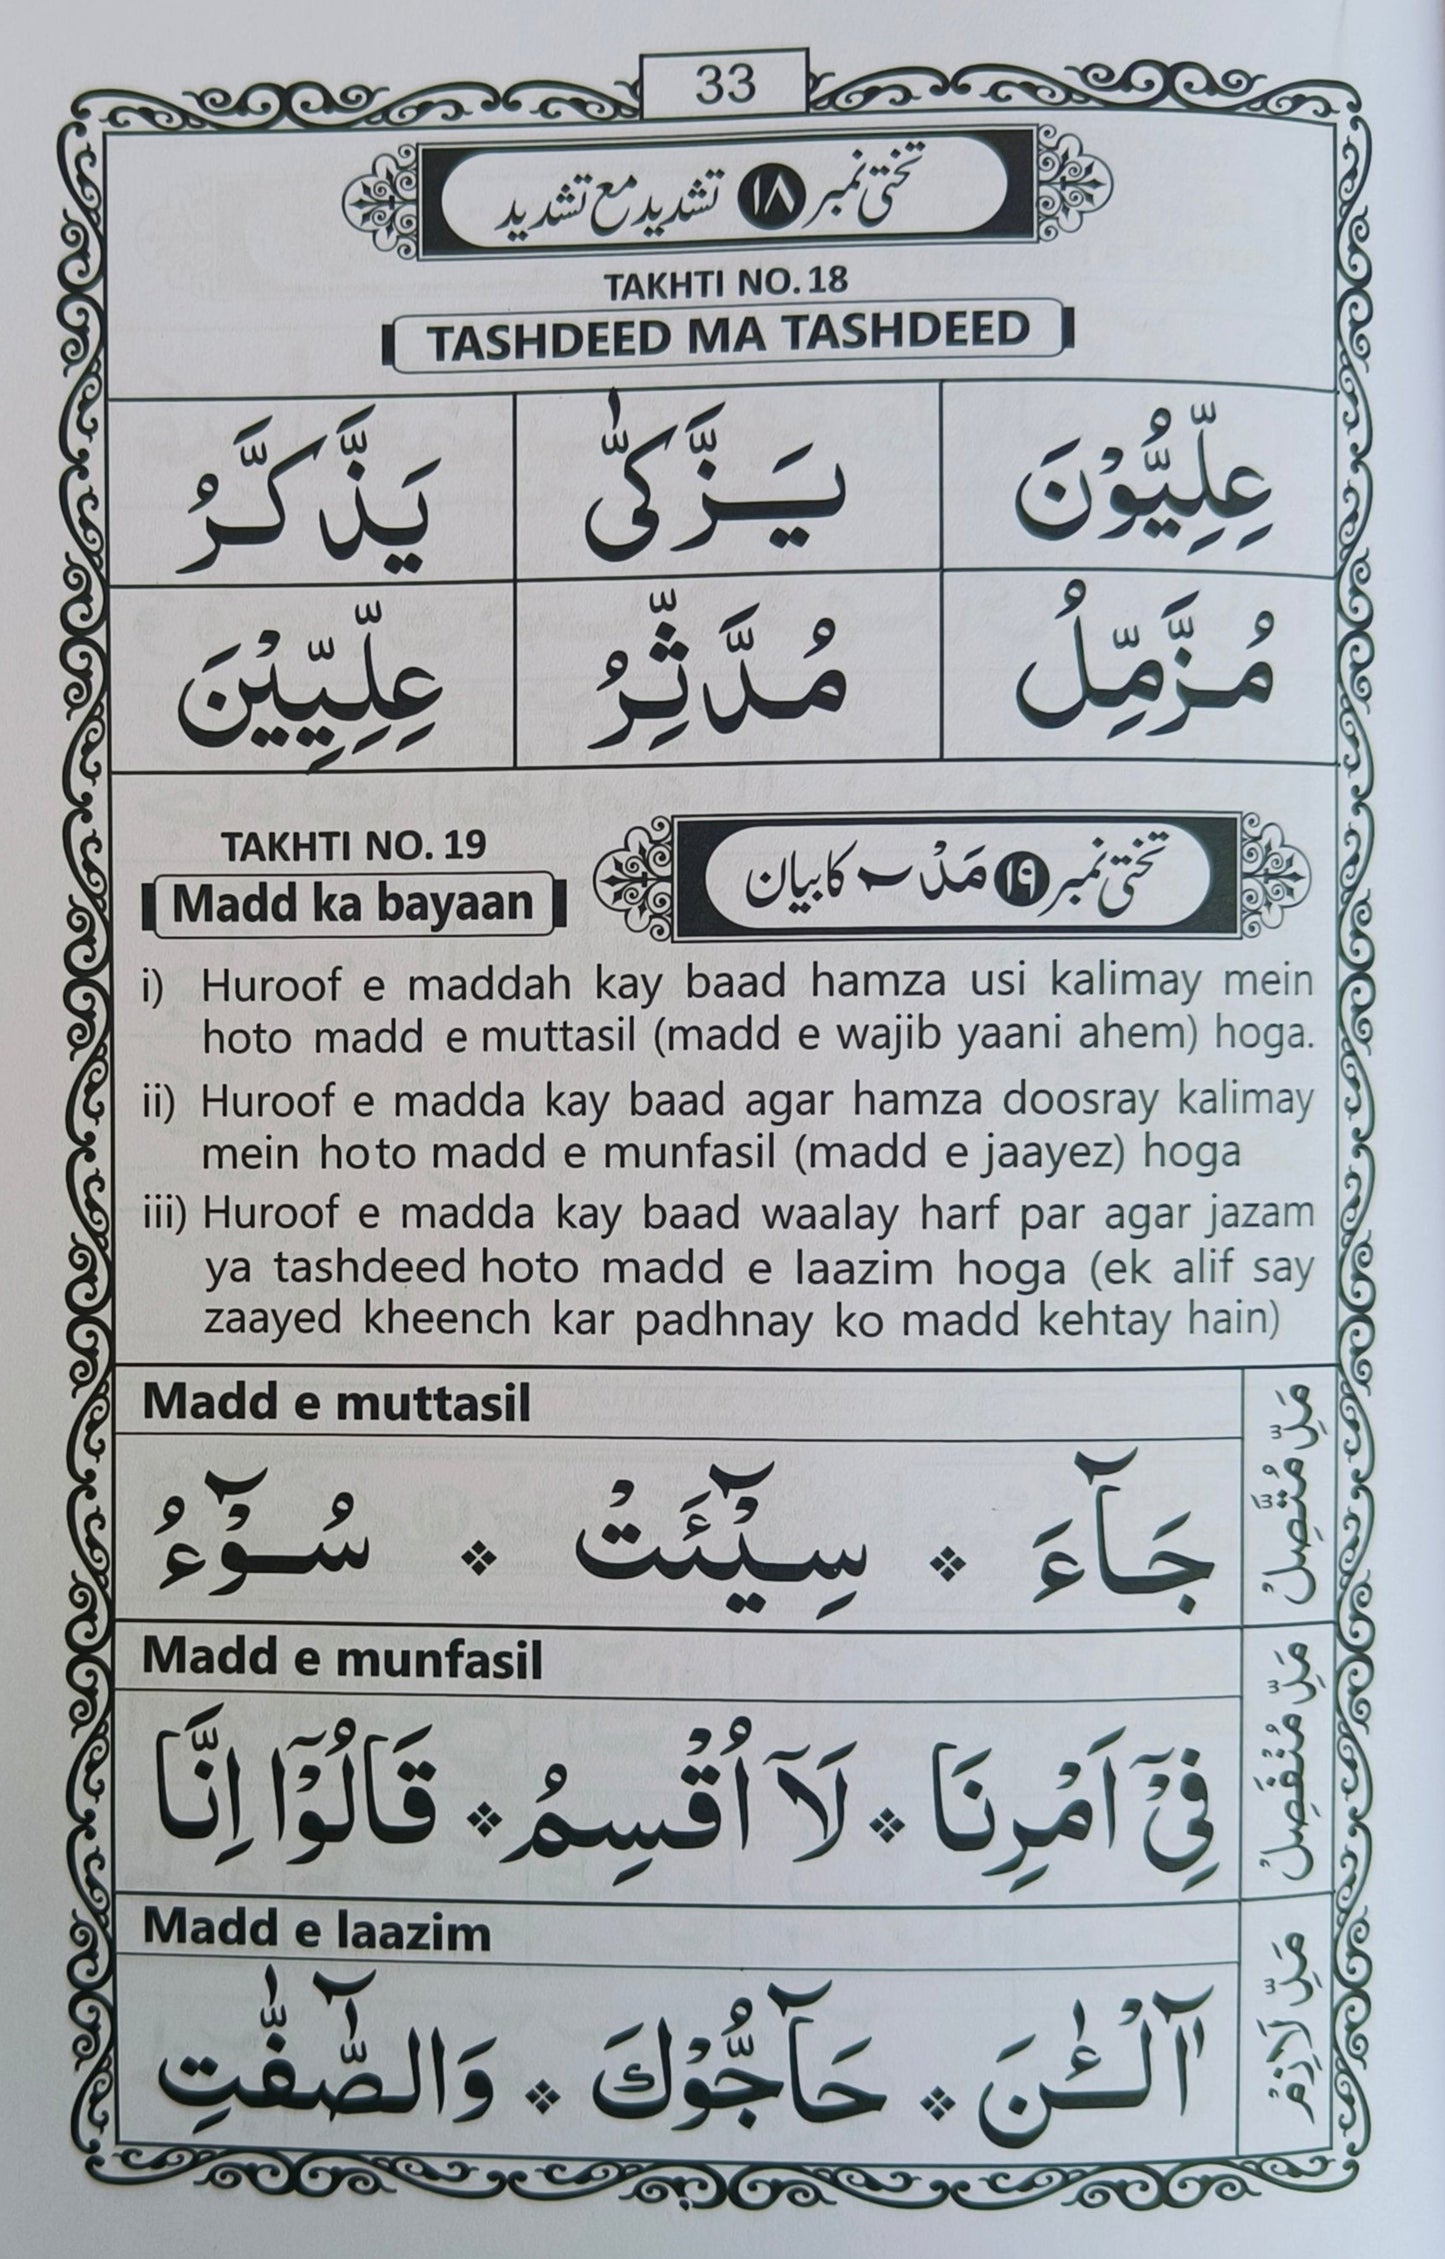 33
تختی نمبر ۱۸ تشدید مع تشدید
TAKHTI NO. 18
TASHDEED MA TASHDEED
عِلِّیُّوْنَ یَزَّكّٰی یَذَّكَّرُ
مُزَّمِّلُ مُدَّثِّرُ عِلِّیِّیْنَ
تختی نمبر ۱۹ مَدْ ~ کا بیان
TAKHTI NO. 19
Madd ka bayaan
i) Huroof e maddah kay baad hamza usi kalimay mein
hoto madd e muttasil (madd e wajib yaani ahem) hoga.
ii) Huroof e madda kay baad agar hamza doosray kalimay
mein hoto madd e munfasil (madd e jaayez) hoga
iii) Huroof e madda kay baad waalay harf par agar jazam
ya tashdeed hoto madd e laazim hoga (ek alif say
zaayed kheench kar padhnay ko madd kehtay hain)
Madd e muttasil
مَدِّ مُتَّصِلْ
جَآءَ ❖ سِیْٓئَتْ ❖ سُوْٓءُ
Madd e munfasil
مَدِّ مُنْفَصِلْ
فِیْٓ اَمْرِنَا ❖ لَآ اُقْسِمُ ❖ قَالُوْٓا اِنَّا
Madd e laazim
مَدِّ لَازِمْ
آٰلْـٰٔنَ ❖ حَآجُّوْكَ ❖ وَالصّٰٓفّٰتِ